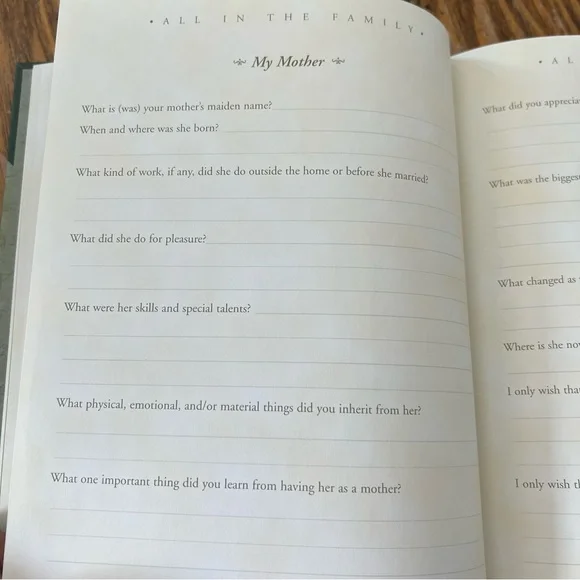 • ALL IN THE FAMILY •
My Mother
What is (was) your mother's maiden name?
When and where was she born?
What kind of work, if any, did she do outside the home or before she married?
What did she do for pleasure?
What were her skills and special talents?
What physical, emotional, and/or material things did you inherit from her?
What one important thing did you learn from having her as a mother?
• A L
What did you
What was the
What changed as
Where is she
I only wish
I only wish